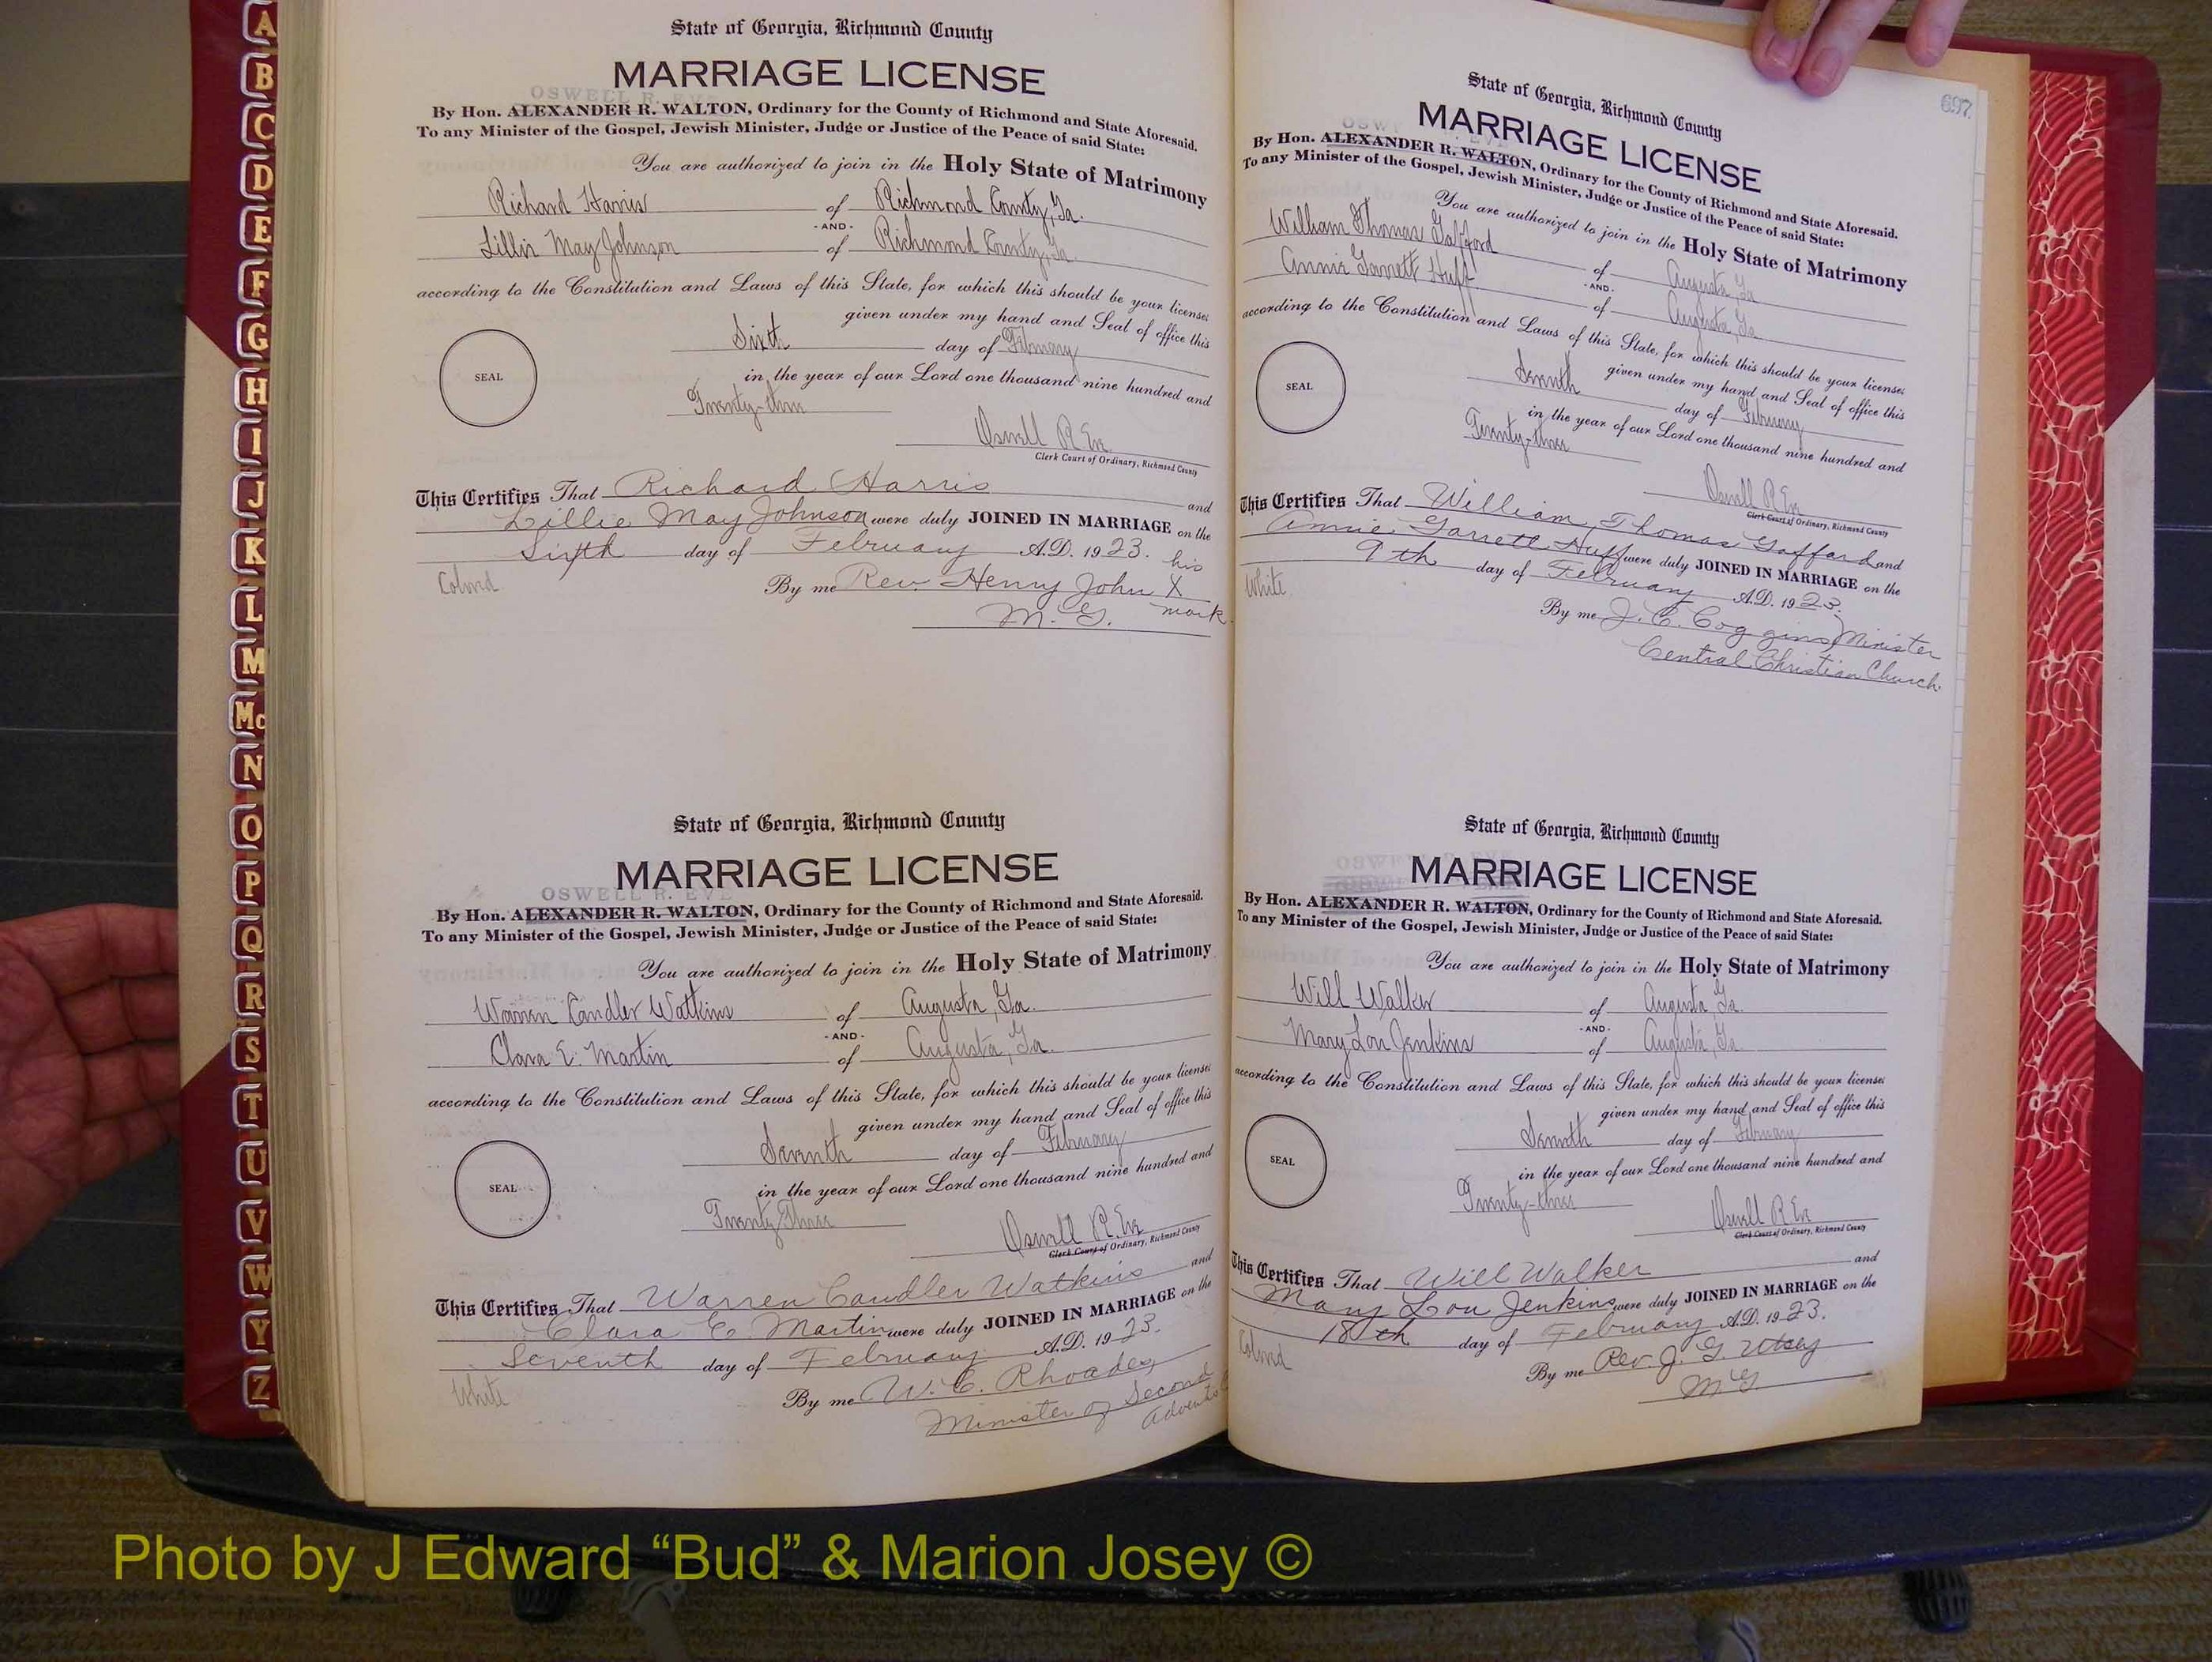 A
B
C
D
E
F
G
H
I
J
K
L
M
Mc
N
O
P
Q
R
S
T
U
V
W
Y
Z
State of Georgia, Richmond County
MARRIAGE LICENSE
OSWELL R. EVE
By Hon. ALEXANDER R. WALTON, Ordinary for the County of Richmond and State Aforesaid.
To any Minister of the Gospel, Jewish Minister, Judge or Justice of the Peace of said State:
You are authorized to join in the Holy State of Matrimony
Richard Harris of Richmond County, Ga.
- AND -
Lillie May Johnson of Richmond County, Ga.
according to the Constitution and Laws of this State, for which this should be your license;
given under my hand and Seal of office this
Sixth day of February
SEAL
in the year of our Lord one thousand nine hundred and
Twenty-three
Oswell R. Eve
Clerk Court of Ordinary, Richmond County
This Certifies That Richard Harris and
Lillie May Johnson were duly JOINED IN MARRIAGE on the
Sixth day of February A.D. 1923.
Colored
By me Rev. Henry John his X mark
M. G.
State of Georgia, Richmond County
MARRIAGE LICENSE
OSWELL R. EVE
By Hon. ALEXANDER R. WALTON, Ordinary for the County of Richmond and State Aforesaid.
To any Minister of the Gospel, Jewish Minister, Judge or Justice of the Peace of said State:
You are authorized to join in the Holy State of Matrimony
Warren Candler Watkins of Augusta, Ga.
- AND -
Clara E. Martin of Augusta, Ga.
according to the Constitution and Laws of this State, for which this should be your license;
given under my hand and Seal of office this
Seventh day of February
SEAL
in the year of our Lord one thousand nine hundred and
Twenty Three
Oswell R. Eve
Clerk Court of Ordinary, Richmond County
This Certifies That Warren Candler Watkins and
Clara E. Martin were duly JOINED IN MARRIAGE on the
Seventh day of February A.D. 1923.
White
By me W. C. Rhoades
Minister of Second
697.
State of Georgia, Richmond County
MARRIAGE LICENSE
By Hon. ALEXANDER R. WALTON, Ordinary for the County of Richmond and State Aforesaid.
To any Minister of the Gospel, Jewish Minister, Judge or Justice of the Peace of said State:
You are authorized to join in the Holy State of Matrimony
William Thomas Gafford of Augusta Ga
- AND -
Annie Garrett Huff of Augusta, Ga.
according to the Constitution and Laws of this State, for which this should be your license;
given under my hand and Seal of office this
Seventh day of February
SEAL
in the year of our Lord one thousand nine hundred and
Twenty-three
Oswell R. Eve
Clerk Court of Ordinary, Richmond County
This Certifies That William Thomas Gafford and
Annie Garrett Huff were duly JOINED IN MARRIAGE on the
9th day of February A.D. 1923.
White
By me J. C. Coggins, Minister
Central Christian Church.
State of Georgia, Richmond County
MARRIAGE LICENSE
By Hon. ALEXANDER R. WALTON, Ordinary for the County of Richmond and State Aforesaid.
To any Minister of the Gospel, Jewish Minister, Judge or Justice of the Peace of said State:
You are authorized to join in the Holy State of Matrimony
Will Walker of Augusta, Ga.
- AND -
Mary Lou Jenkins of Augusta, Ga.
according to the Constitution and Laws of this State, for which this should be your license;
given under my hand and Seal of office this
Seventh day of February
SEAL
in the year of our Lord one thousand nine hundred and
Twenty-three
Oswell R. Eve
Clerk Court of Ordinary, Richmond County
This Certifies That Will Walker and
Mary Lou Jenkins were duly JOINED IN MARRIAGE on the
18th day of February A.D. 1923.
Colored
By me Rev. J. G. Utsey
M G.
Photo by J Edward “Bud” & Marion Josey ©